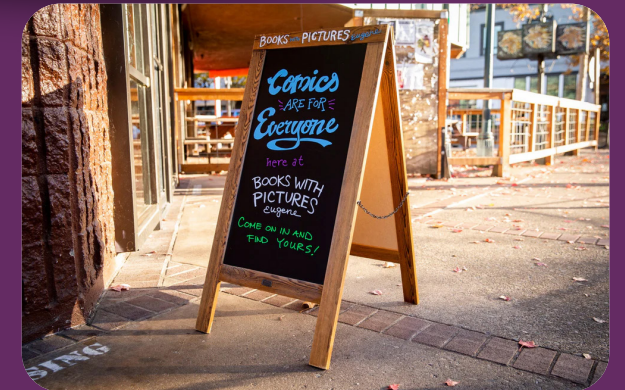 BOOKS WITH PICTURES Eugene
Comics
ARE FOR
Everyone
here at
BOOKS WITH
PICTURES
Eugene
COME ON IN AND
FIND YOURS!
SING